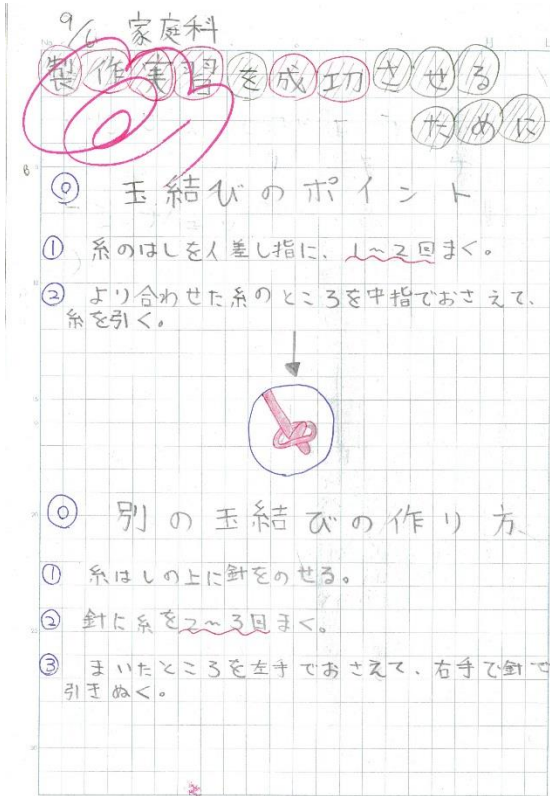 9/6 家庭科
製作実習を成功させる
ために
◎ 玉結びのポイント
① 糸のはしを人差し指に、1〜2回まく。
② より合わせた糸のところを中指でおさえて、
糸を引く。
◎ 別の玉結びの作り方
① 糸はしの上に針をのせる。
② 針に糸を2〜3回まく。
③ まいたところを左手でおさえて、右手で針で
引きぬく。